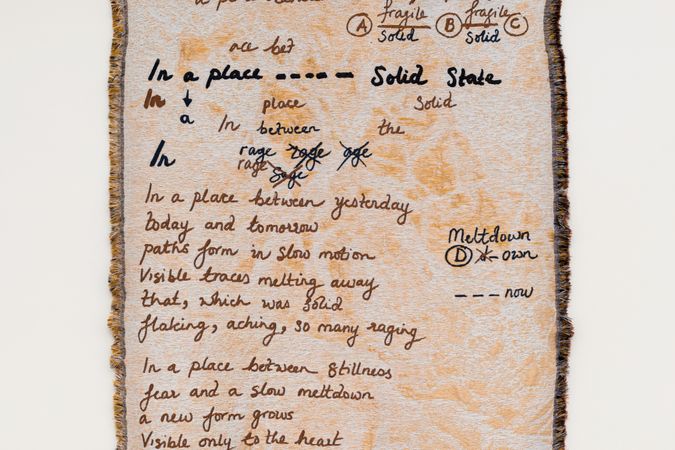 fragile fragile
A Solid B Solid C
ace bet
In a place ----- Solid State
In place Solid
a In between the
In rage rage age
rage Sage
In a place between yesterday
today and tomorrow
paths form in slow motion
Visible traces melting away
that, which was solid
flaking, aching, so many raging
Meltdown
D own
--- now
In a place between stillness
fear and a slow meltdown
a new form grows
Visible only to the heart